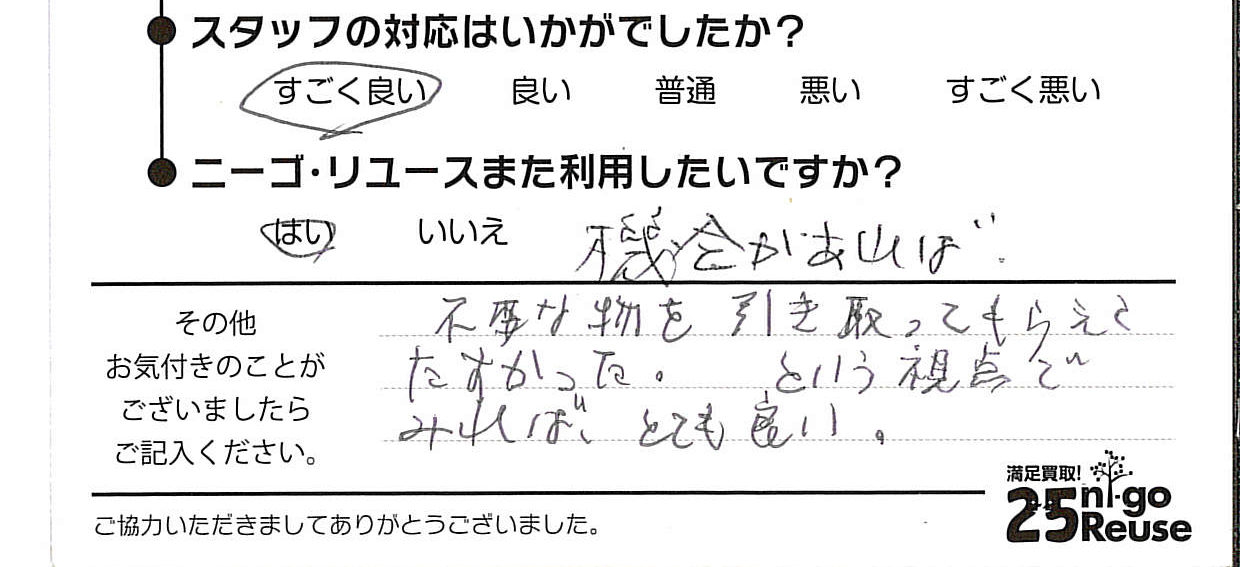 スタッフの対応はいかがでしたか?
すごく良い 良い 普通 悪い すごく悪い
ニーゴ・リユースまた利用したいですか?
はい いいえ 機会があれば
その他
お気付きのことが
ございましたら
ご記入ください。
不要な物を引き取ってもらえて
たすかった。 という視点で
みれば、とても良い。
満足買取!
25 ni-go
Reuse
ご協力いただきましてありがとうございました。